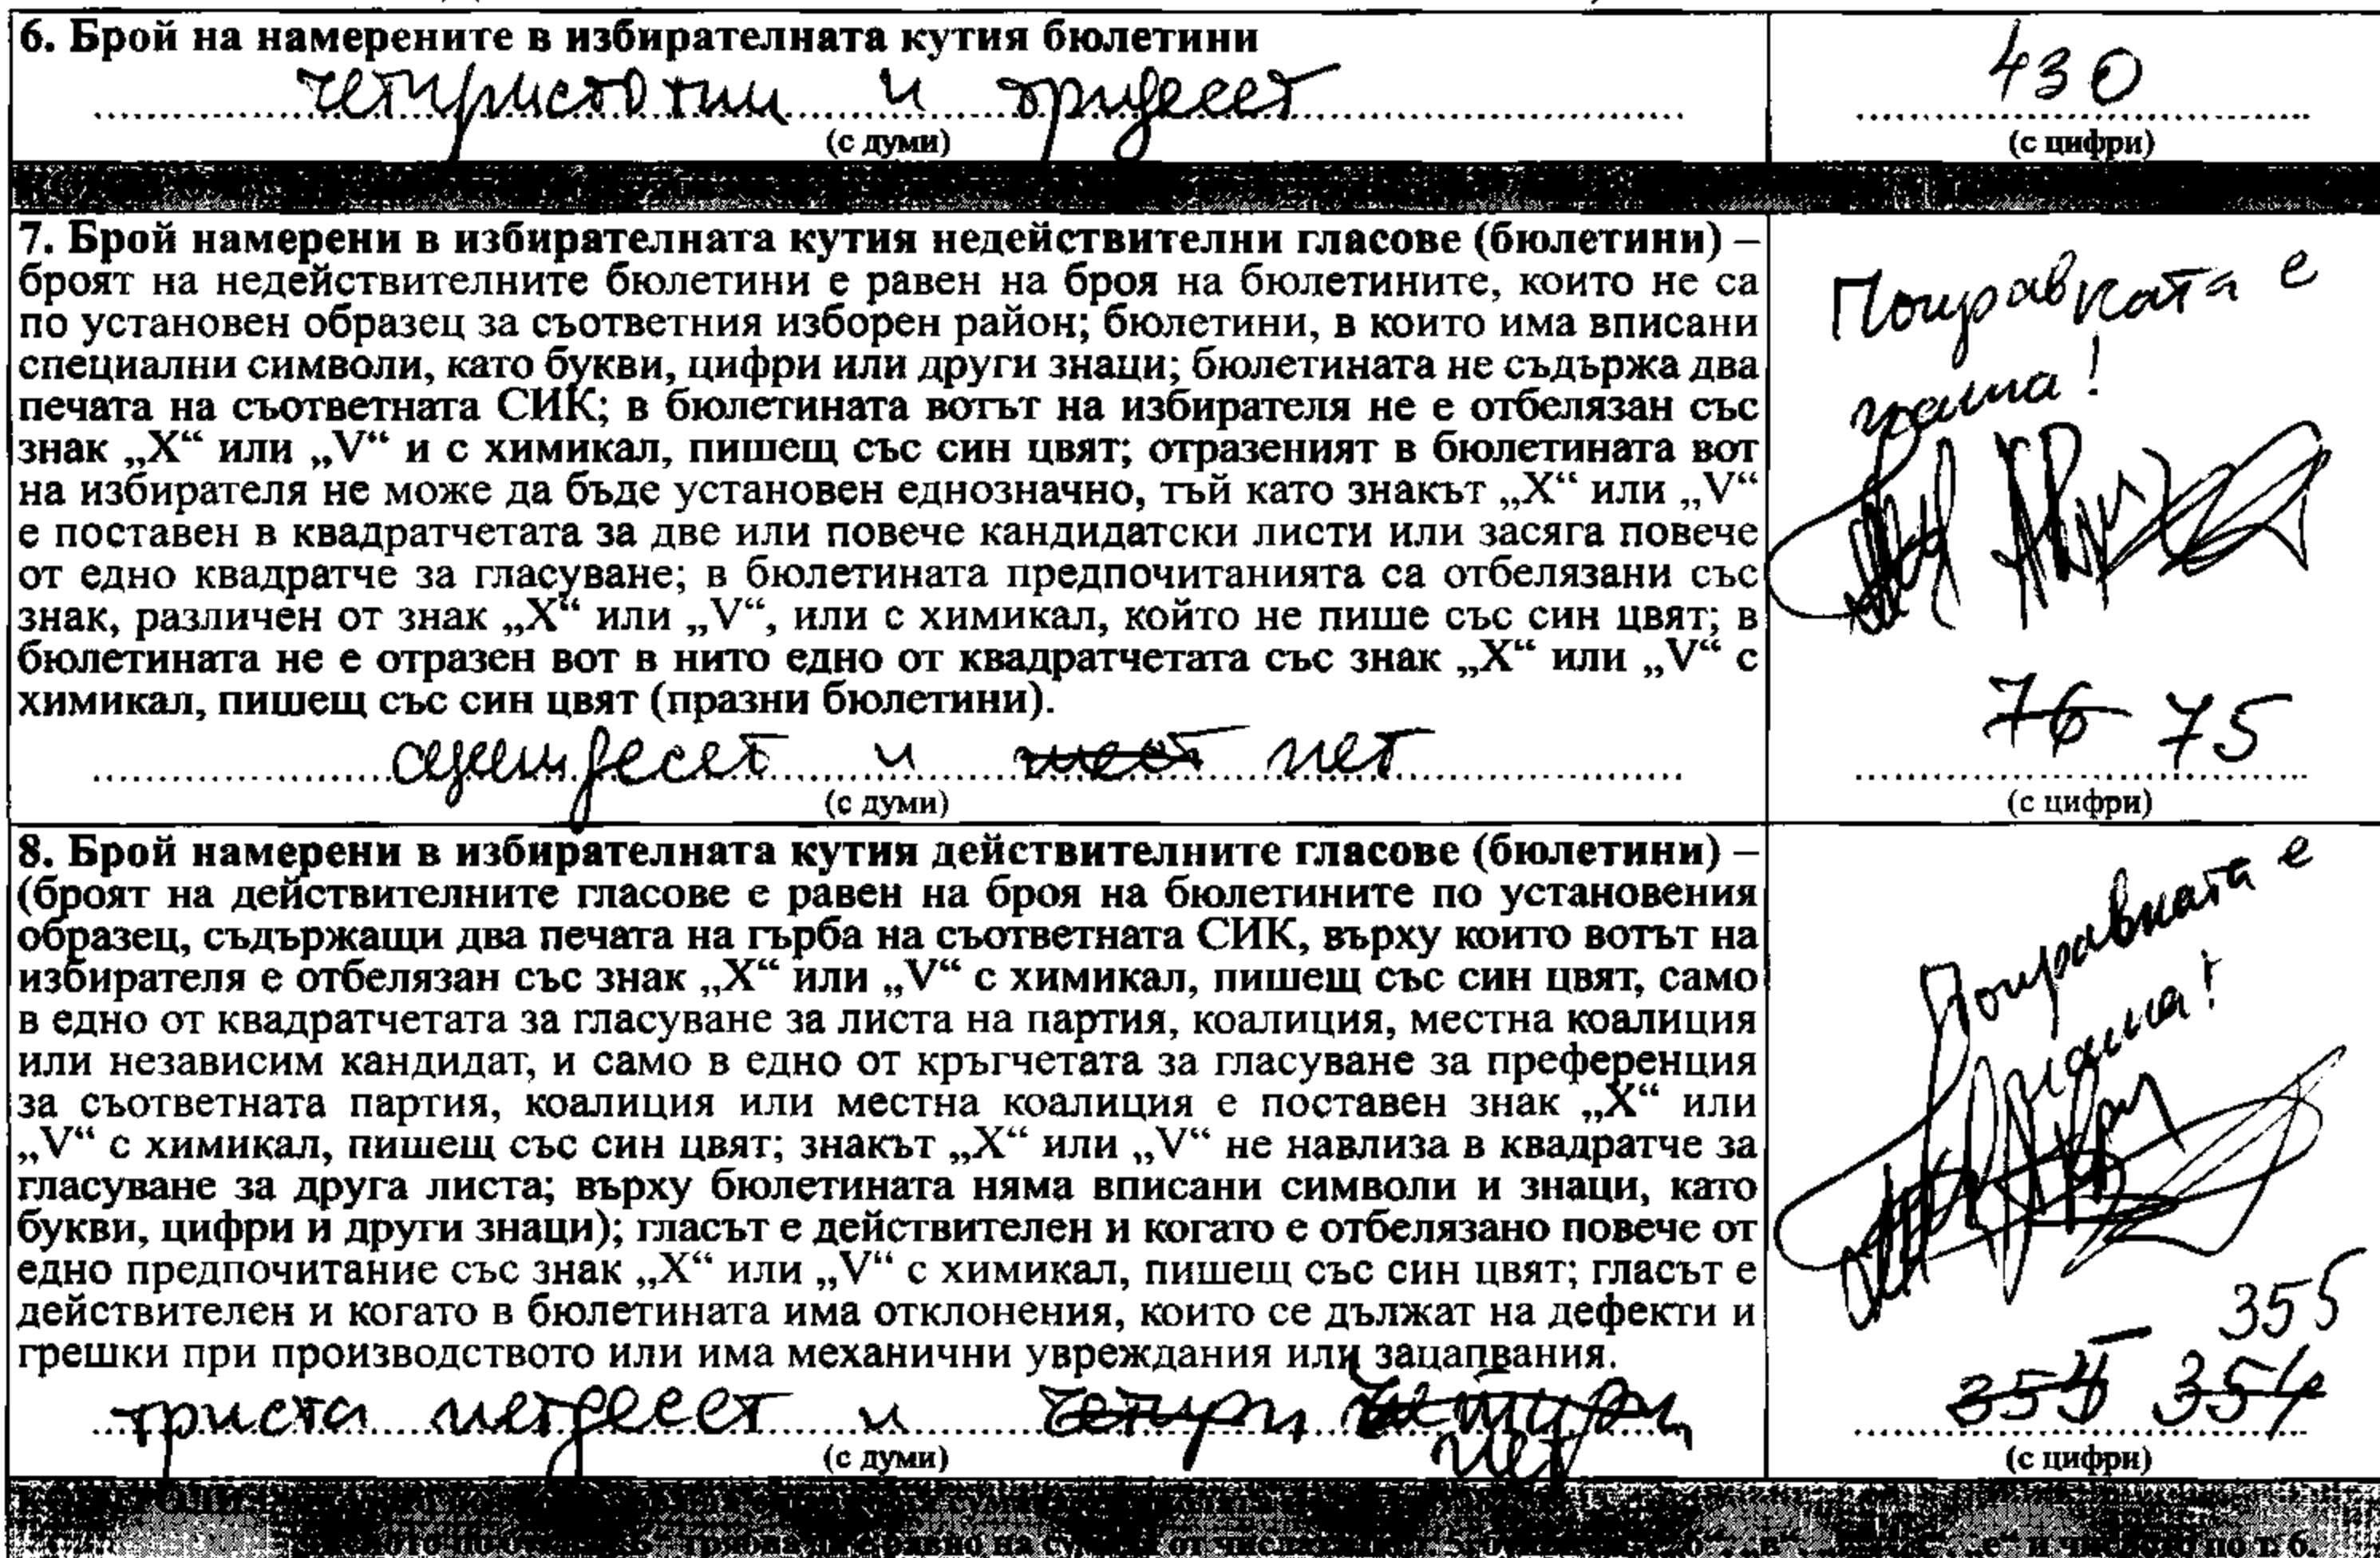 6. Брой на намерените в избирателната кутия бюлетини
четиристотин и тридесет
430
(с думи)
(с цифри)
7. Брой намерени в избирателната кутия недействителни гласове (бюлетини) –
броят на недействителните бюлетини е равен на броя на бюлетините, които не са
по установен образец за съответния изборен район; бюлетини, в които има вписани
специални символи, като букви, цифри или други знаци; бюлетината не съдържа два
печата на съответната СИК; в бюлетината вотът на избирателя не е отбелязан със
знак „X“ или „V“ и с химикал, пишещ със син цвят; отразеният в бюлетината вот
на избирателя не може да бъде установен еднозначно, тъй като знакът „X“ или „V“
е поставен в квадратчетата за две или повече кандидатски листи или засяга повече
от едно квадратче за гласуване; в бюлетината предпочитанията са отбелязани със
знак, различен от знак „X“ или „V“, или с химикал, който не пише със син цвят; в
бюлетината не е отразен вот в нито едно от квадратчетата със знак „X“ или „V“ с
химикал, пишещ със син цвят (празни бюлетини).
седемдесет и шест пет
(с думи)
Поправката е
наша!
76 75
(с цифри)
8. Брой намерени в избирателната кутия действителните гласове (бюлетини) –
(броят на действителните гласове е равен на броя на бюлетините по установения
образец, съдържащи два печата на гърба на съответната СИК, върху които вотът на
избирателя е отбелязан със знак „X“ или „V“ с химикал, пишещ със син цвят, само
в едно от квадратчетата за гласуване за листа на партия, коалиция, местна коалиция
или независим кандидат, и само в едно от кръгчетата за гласуване за преференция
за съответната партия, коалиция или местна коалиция е поставен знак „X“ или
„V“ с химикал, пишещ със син цвят; знакът „X“ или „V“ не навлиза в квадратче за
гласуване за друга листа; върху бюлетината няма вписани символи и знаци, като
букви, цифри и други знаци); гласът е действителен и когато е отбелязано повече от
едно предпочитание със знак „X“ или „V“ с химикал, пишещ със син цвят; гласът е
действителен и когато в бюлетината има отклонения, които се дължат на дефекти и
грешки при производството или има механични увреждания или зацапвания.
триста петдесет и четири четири
пет
(с думи)
Поправката е
наша!
355
354
(с цифри)